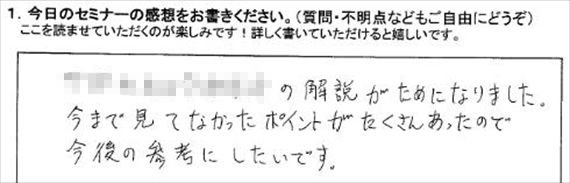 1. 今日のセミナーの感想をお書きください。(質問・不明点などもご自由にどうぞ)
ここを読ませていただくのが楽しみです!詳しく書いていただけると嬉しいです。
の解説がためになりました。
今まで見てなかったポイントがたくさんあったので
今後の参考にしたいです。